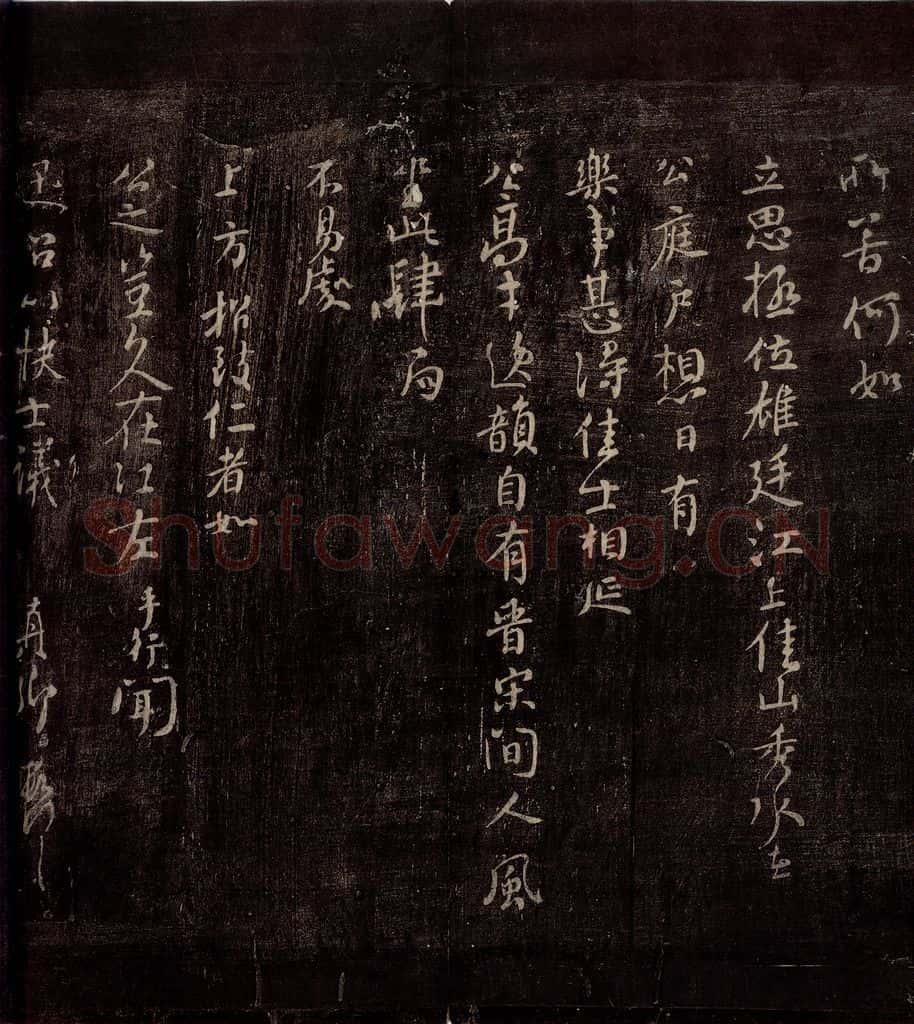 所苦何如
立思極位雄廷江上佳山秀水在
公庭戶想日有
樂事甚得佳士相延
公高才逸韻自有晉宋間人風
坐此肆局
不易處
上方招致仁者如
公之豈久在江左 手行聞
迅召以快士議
Shufawang.CN